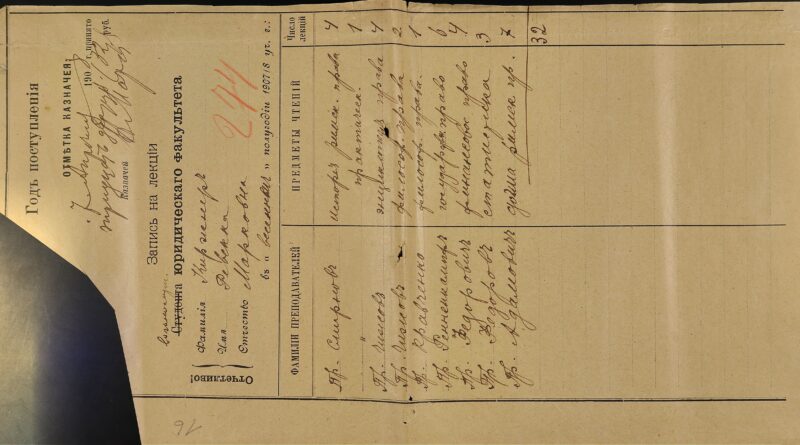 Годъ поступленія
ОТМѢТКА КАЗНАЧЕЯ:
190 г. принято
руб.
Казначей
Запись на лекціи
Студента юридическаго факультета
Отчетливо!
Фамилія Киржнеръ
Имя Ревекка
Отчество Марковна
244
въ „ весеннемъ „ полугодіи 1907/8 уч. г.:
ФАМИЛІИ ПРЕПОДАВАТЕЛЕЙ ПРЕДМЕТЫ ЧТЕНІЙ Число лекцій
Пр. Смирновъ исторія римск. права 4
" практическ. 1
Пр. энциклопедія права 4
Пр. философ. права 2
Пр. Кравченко философ. права. 1
Пр. Ренненкампфъ государств. право 6
Пр. Федоровичъ финансовое право 4
Пр. Федоровъ статистика 3
Пр. Адамовичъ догма римск. пр. 7
32
16